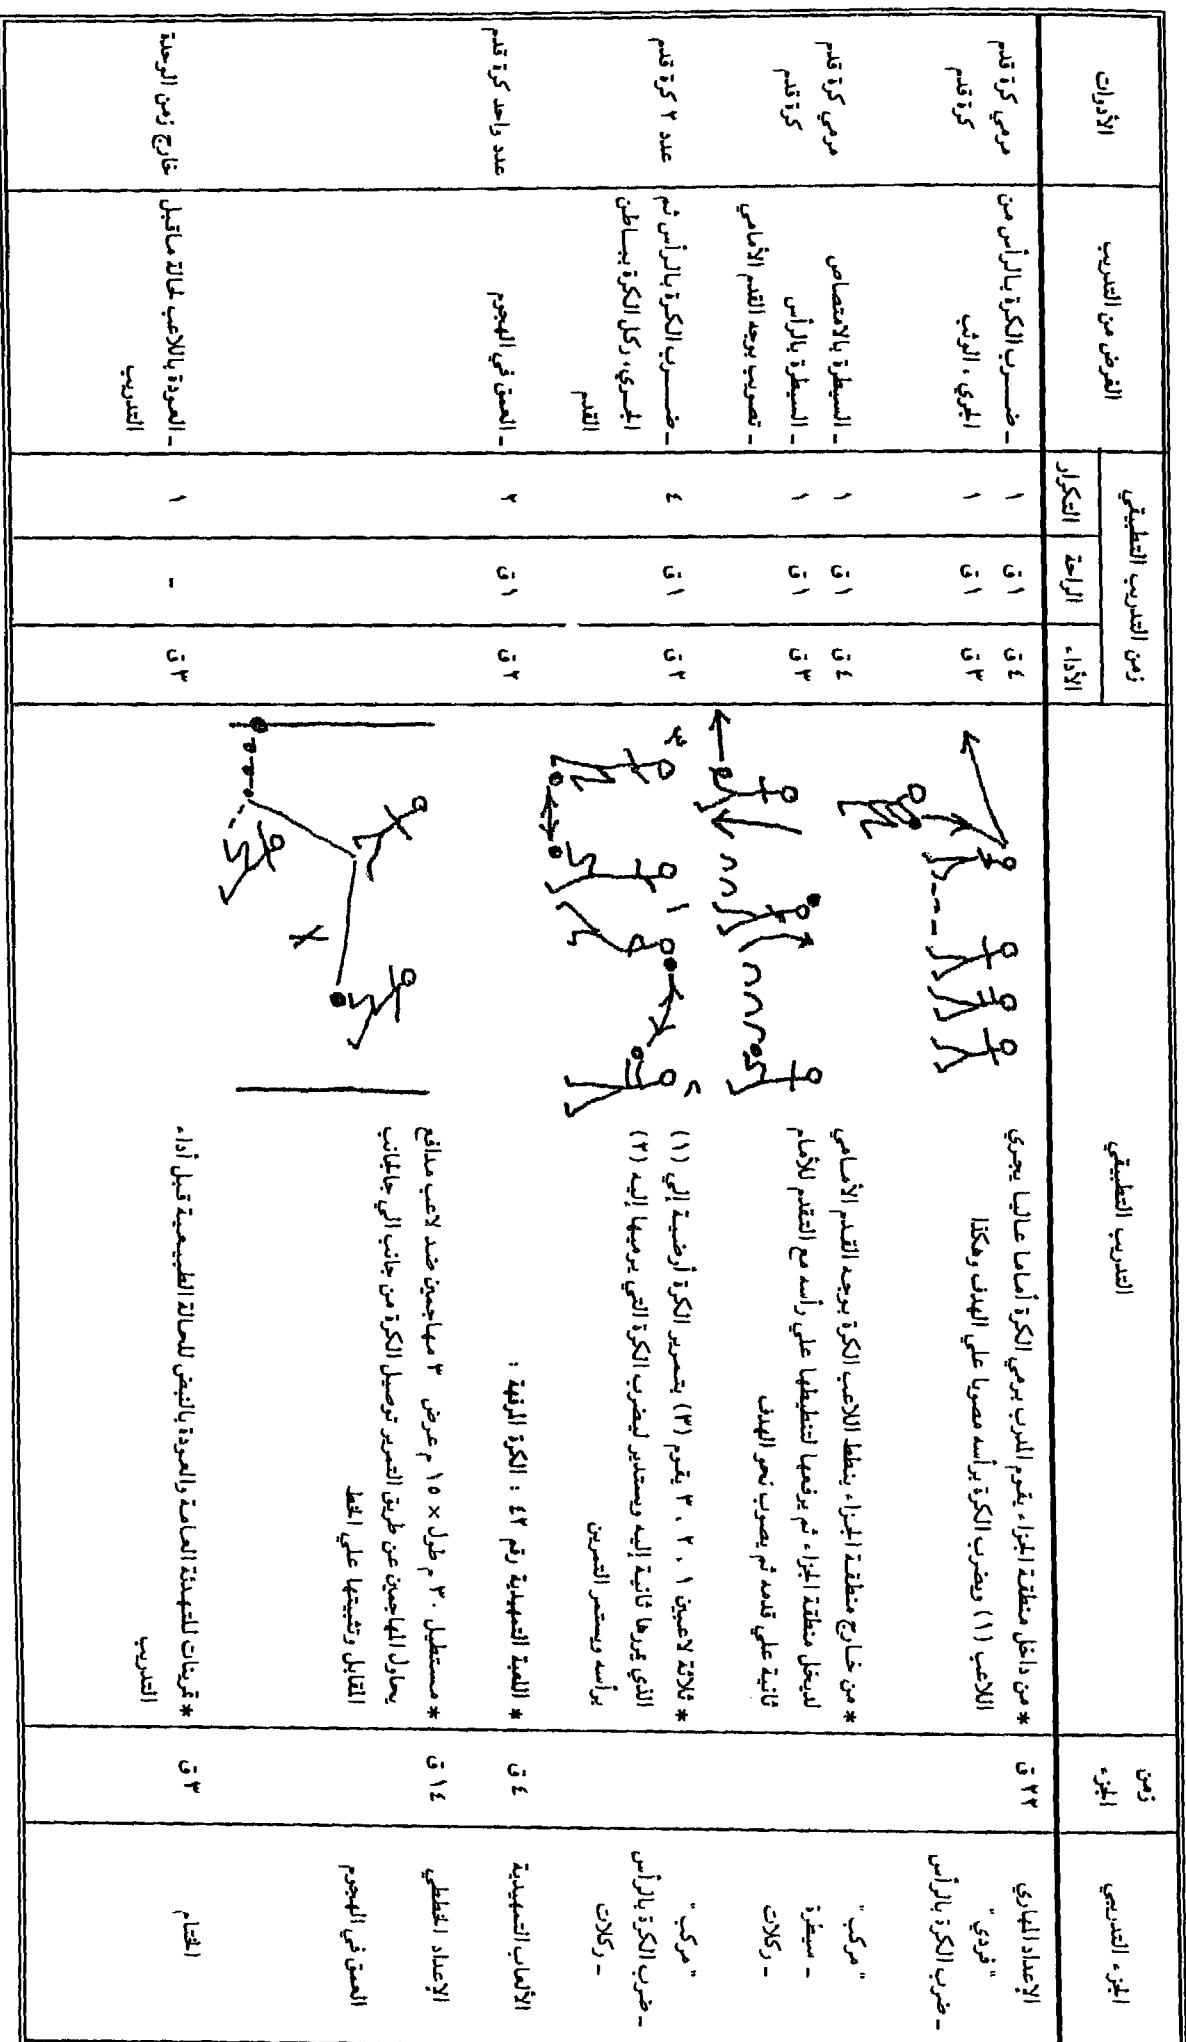 الجزء التدريبي
زمن
الجزء
التدريب التطبيقي
زمن التدريب التطبيقي
الأداء
الراحة
التكرار
الغرض من التدريب
الأدوات
الإعداد المهاري
" فردي "
ـ ضرب الكرة بالرأس
٢٢ ق
* من داخل منطقة الجزاء يقوم المدرب برمي الكرة أماما عاليا يجري
اللاعب (١) ويضرب الكرة برأسه مصوبا علي الهدف وهكذا
٤ ق
٣ ق
١ ق
١ ق
١
١
ـ ضـــرب الكرة بالرأس من
الجري ، الوثب
مرمي كرة قدم
كرة قدم
" مركب "
ـ سيطرة
ـ ركلات
* من خـارج منطقـة الجـزاء ينطط اللاعب الكرة بوجـه القـدم الأمـامي
لديخل منطقة الجزاء ثم يرفعها لتنطيطها علي رأسه مع التقدم للأمام
ثانية علي قدمه ثم يصوب نحو الهدف
٤ ق
٣ ق
١ ق
١ ق
١
١
ـ السيطرة بالامتصاص
ـ السيطرة بالرأس
ـ تصويب بوجه القدم الأمامي
مرمي كرة قدم
كرة قدم
" مركب "
ـ ضرب الكرة بالرأس
ـ ركلات
٣
١
٢
* ثلاثة لاعبين ١ ، ٢ ، ٣ يقوم (٣) بتـمرير الكرة أرضيـة إلي (١)
الذي يمررها ثانية إليه ويستدير ليضرب الكرة التي يرميها إليه (٢)
برأسه ويستمر التمرين
٢ ق
١ ق
٤
ـ ضـــرب الكـرة بالـرأس ثم
الجـري ، ركل الكرة ببـاطن
القدم
عدد ٢ كرة قدم
الألعاب التمهيدية
٤ ق
* اللعبة التمهيدية رقم ٤٢ : الكرة المرفهة :
٢ ق
١ ق
٢
ـ العمق في الهجوم
عدد واحد كرة قدم
الإعداد الخططي
العمق في الهجوم
١٤ ق
* مستطيل ٣٠ م طول × ١٥ م عرض ٣ مهاجمين ضد لاعب مدافع
يحاول المهاجمين عن طريق التمرير توصيل الكرة من جانب الي جالجانب
المقابل وتثبيتها علي الخط
الختام
٣ ق
* تمرينات للتهدئة العامـة والعـودة بالنبض للحـالة الطبيـعيـة قبـل أداء
التدريب
٣ ق
-
١
ـ العـودة باللاعب لحالة مـاقبـل
التدريب
خارج زمن الوحدة